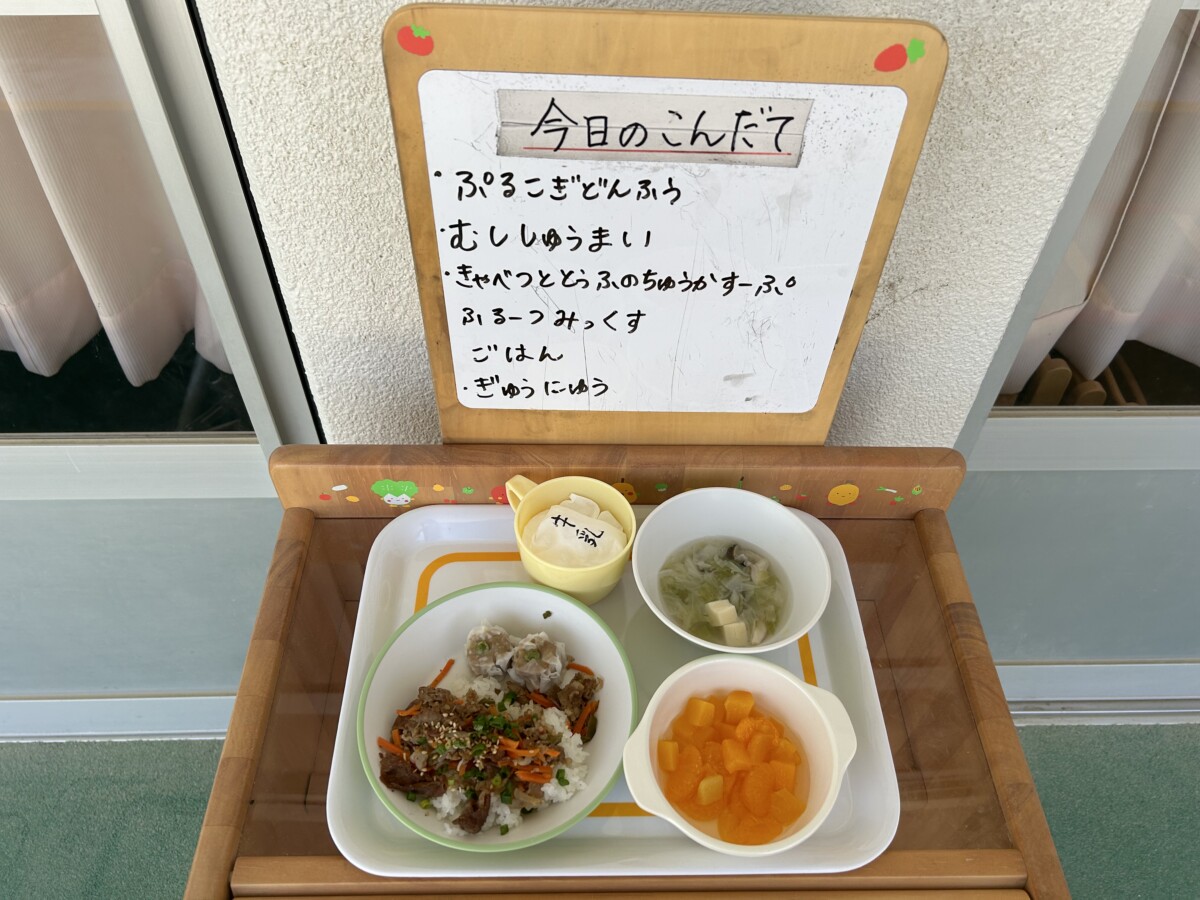 今日のこんだて
・ぷるこぎどんふう
・むししゅうまい
・きゃべつととうふのちゅうかすーぷ
ふるーつみっくす
ごはん
・ぎゅうにゅう
牛乳